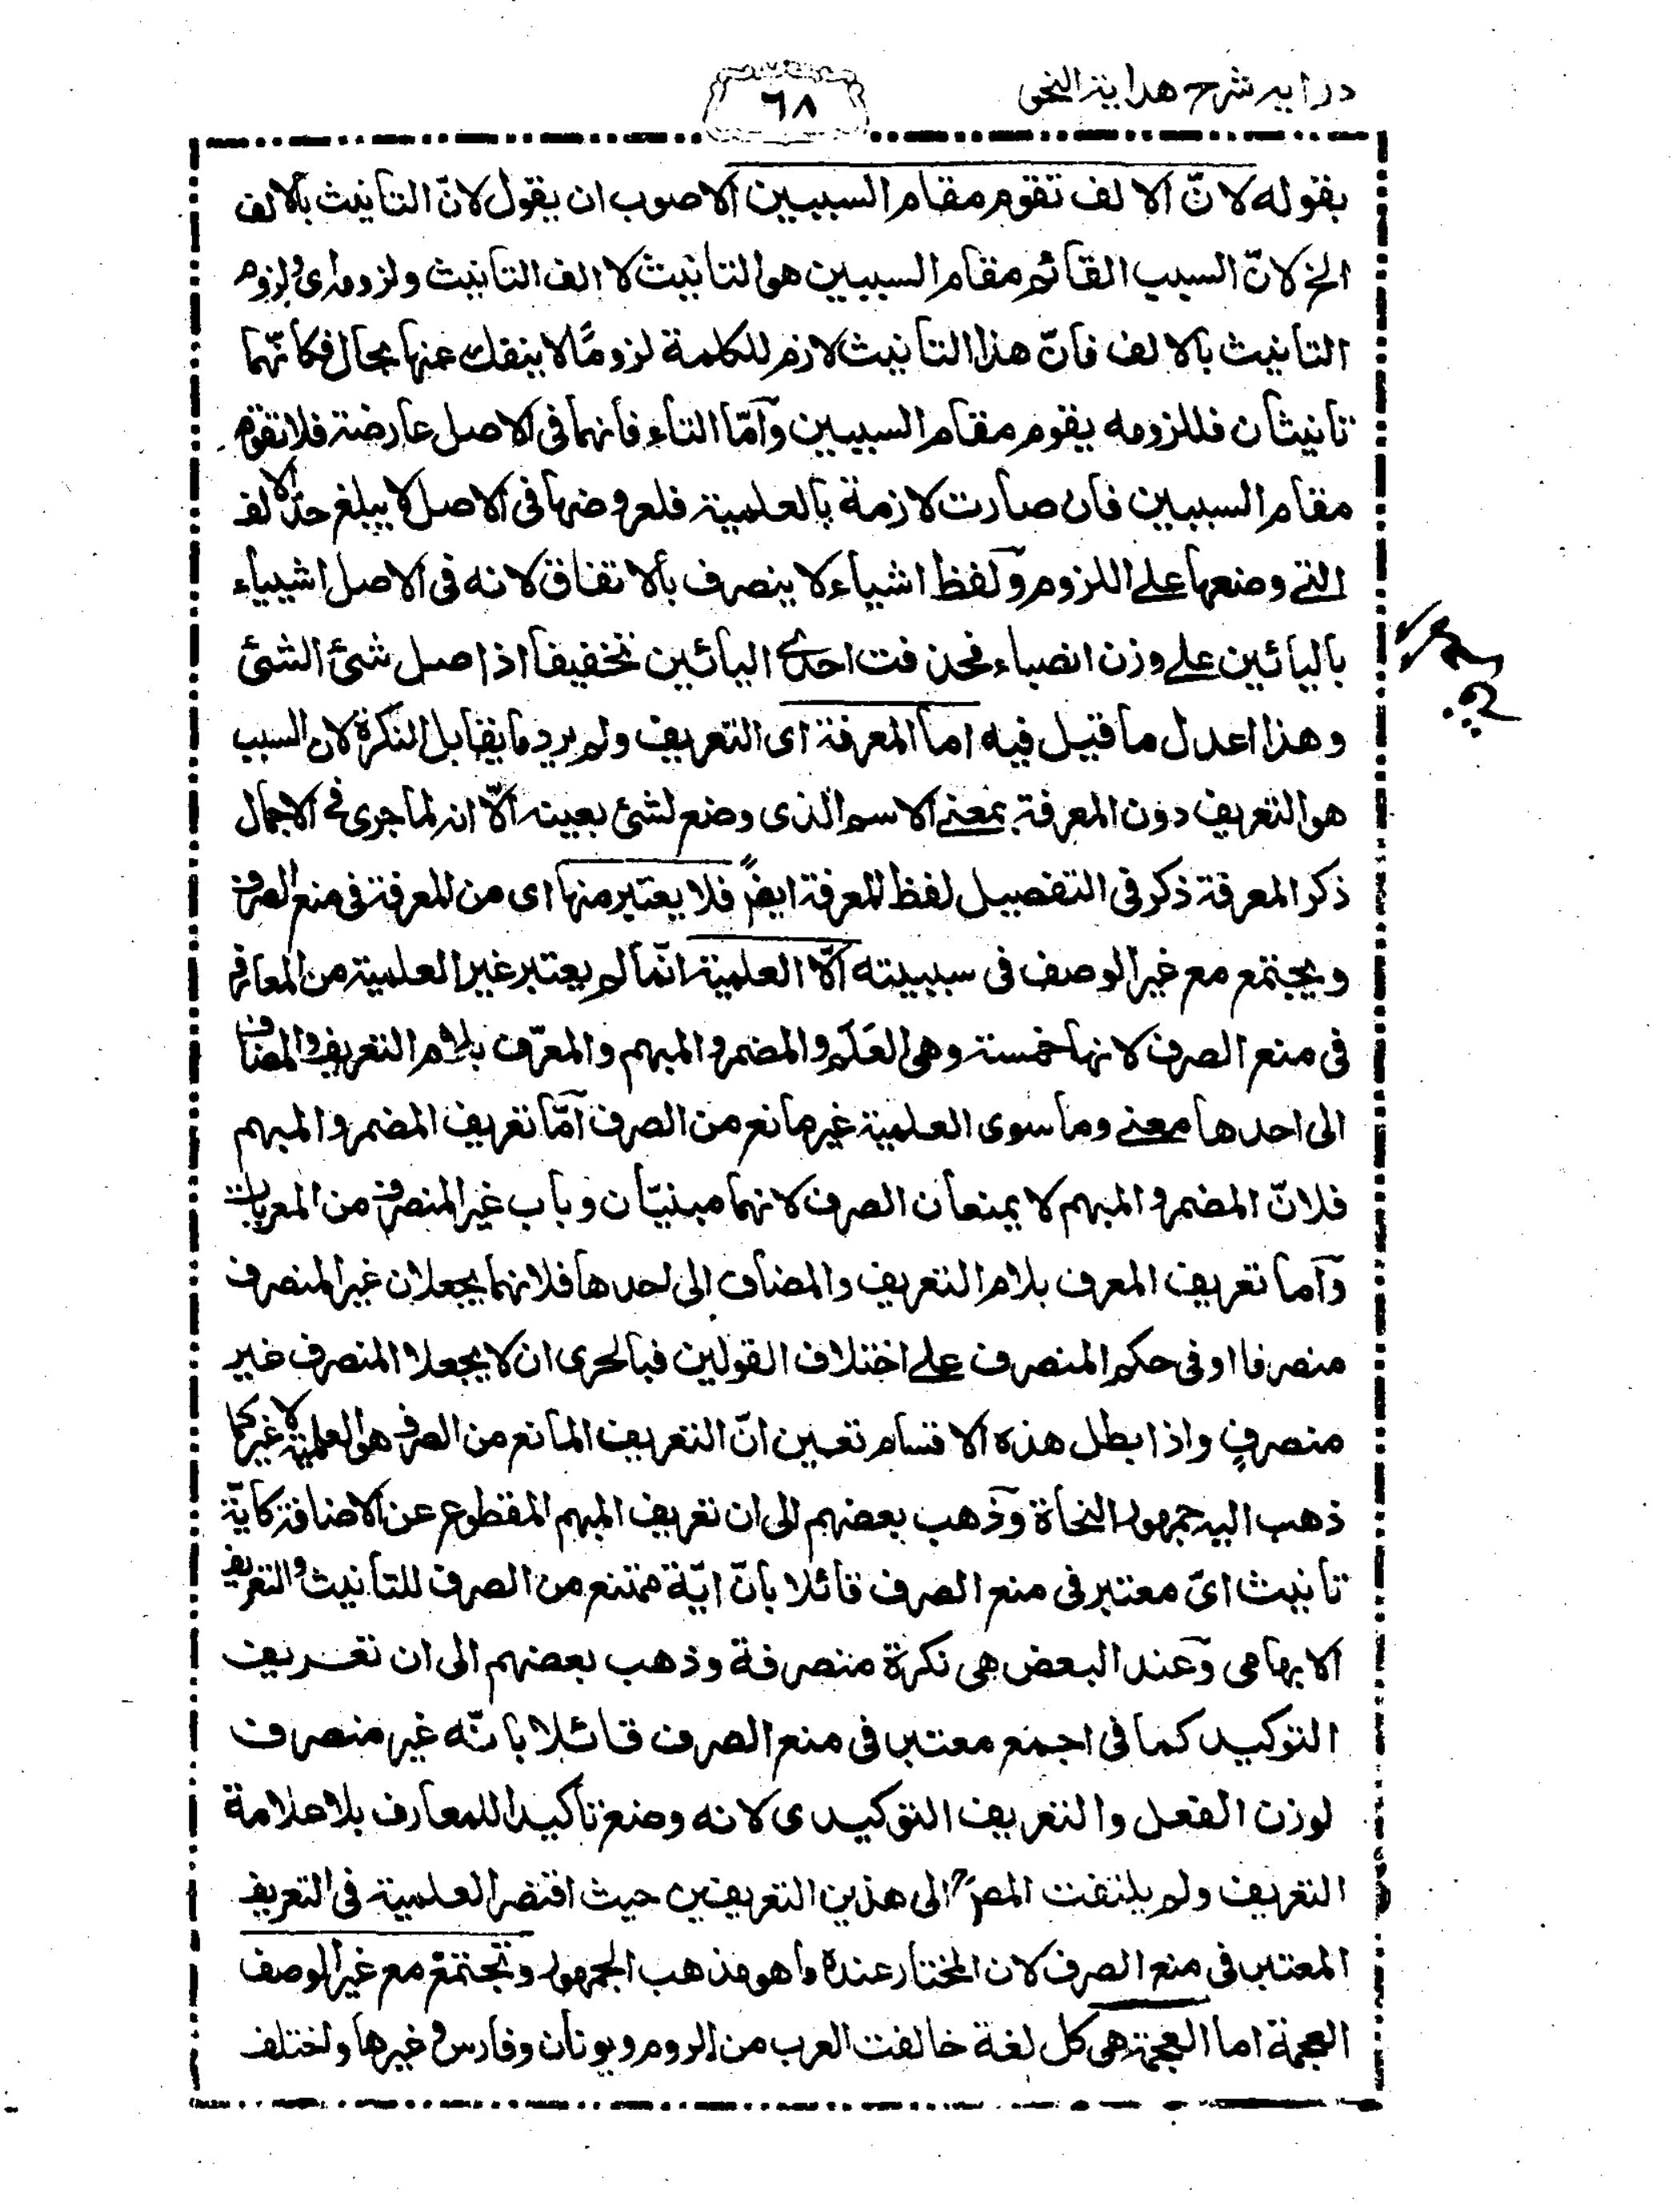 درايه شرح هداية النحو
٦٨
بقوله لانّ الالف تقوم مقام السببين الاصوب ان يقول لانّ التانيث بالالف
الخ لانّ السبب القائم مقام السببين هو التانيث لا الف التانيث ولزومه اى ولزوم
التانيث بالالف فانّ هذا التانيث لازم للكلمة لزومًا لا ينفك عنها بحال فكانّهما
تانيثان فللزومه يقوم مقام السببين وامّا التاء فانها فى الاصل عارضة فلا تقوم
مقام السببين فان صارت لازمة بالعلمية فلعروضها فى الاصل لا يبلغ حدّ الالف
التے وضعها علے اللزوم ولفظ اشياء لا ينصرف بالاتفاق لانه فى الاصل اشيياء
باليائين علے وزن انصباء فحذفت احدے اليائين تخفيفا اذ اصل شئ الشئ
وهذا اعدل ما قيل فيه اما المعرفة اى التعريف ولم يرد ما يقابل النكرة لان السبب
هو التعريف دون المعرفة بمعنے الاسم الذى وضع لشئ بعينه الّا انه لما جرى فے الاجمال
ذكر المعرفة ذكر فى التفصيل لفظ المعرفة ايضًا فلا يعتبر منها اى من المعرفة فى منع الصرف
ويجتمع مع غير الوصف فى سببيته الّا العلمية انّما لم يعتبر غير العلمية من المعارف
فى منع الصرف لانها خمسة وهى العَلَم والمضمر والمبهم والمعرّف بلام التعريف والمضاف
الى احدها معنے وما سوى العلمية غير مانع من الصرف امّا تعريف المضمر والمبهم
فلانّ المضمر والمبهم لا يمنعان الصرف لانهما مبنيّان وباب غير المنصرف من المعربات
واما تعريف المعرف بلام التعريف والمضاف الى احدها فلانهما يجعلان غير المنصرف
منصرفا او فى حكم المنصرف علے اختلاف القولين فبالحرى ان لا يجعلا المنصرف غير
منصرفٍ واذا بطل هذه الاقسام تعين انّ التعريف المانع من الصرف هو العلمية لا غير كما
ذهب اليه جمهور النحاة وذهب بعضهم الى ان تعريف المبهم المقطوع عن الاضافة كايّة
تانيث اىّ معتبر فى منع الصرف قائلا بانّ ايّة ممتنع من الصرف للتانيث والتعريف
الابهامى وعند البعض هى نكرة منصرفة وذهب بعضهم الى ان تعريف
التوكيد كما فى اجمع معتبر فى منع الصرف قائلا بانّه غير منصرف
لوزن الفعل والتعريف التوكيدى لانه وضع تاكيدا للمعارف بلا علامة
التعريف ولم يلتفت المصؒ الى هذين التعريفين حيث اقتصر العلمية فى التعريف
المعتبر فى منع الصرف لان المختار عنده ما هو مذهب الجمهور وتجتمع مع غير الوصف
العجمة اما العجمة هى كل لغة خالفت العرب من الروم ويونان وفارس وغيرها واختلف